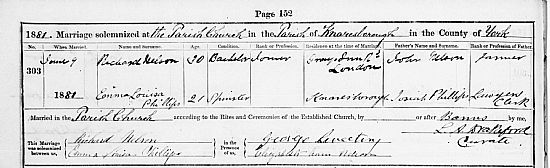 Page 152
1881. Marriage solemnized at the Parish Church in the Parish of Knaresborough in the County of York
No. When Married. Name and Surname. Age. Condition. Rank or Profession. Residence at the time of Marriage. Father's Name and Surname. Rank or Profession of Father.
303 June 9 Richard Nelson 30 Bachelor Grays Inn Rd London John Nelson Farmer
1881 Emma Louisa Phillips 21 Spinster Knaresborough Josiah Phillips Lawyers Clerk
Married in the Parish Church according to the Rites and Ceremonies of the Established Church, by or after Banns by me,
This Marriage was solemnized between us, Richard Nelson Emma Louisa Phillips in the Presence of us, George Elizabeth Ann Nelson Curate